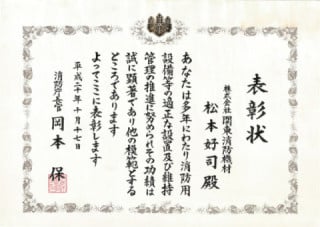 表彰状
株式会社 関東消防機材
松本好司殿
あなたは多年にわたり消防用
設備等の適正な設置及び維持
管理の推進に努められその功績は
誠に顕著であり他の模範とする
ところであります
よってここに表彰します
平成二十年十月十七日
消防庁長官 岡本保